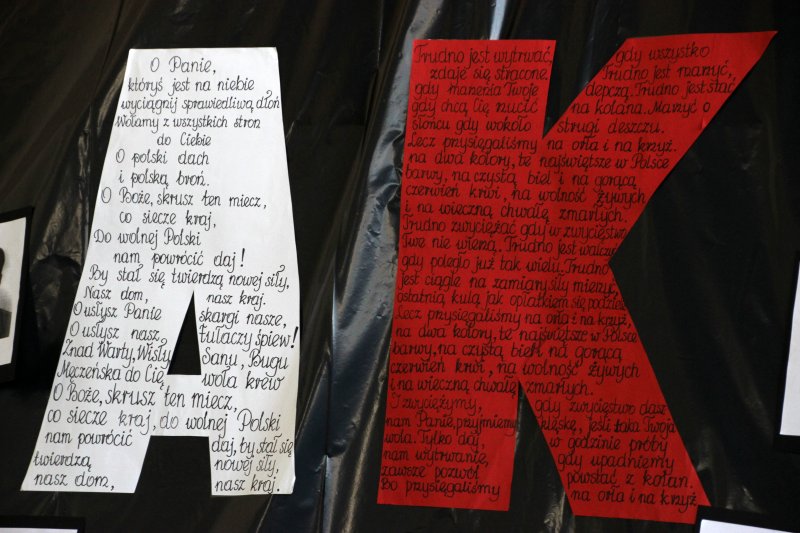 O Panie,
któryś jest na niebie
wyciągnij sprawiedliwą dłoń
Wołamy z wszystkich stron
do Ciebie
O polski dach
i polską broń.
O Boże, skrusz ten miecz,
co siecze kraj,
Do wolnej Polski
nam powrócić daj!
By stał się twierdzą nowej siły,
Nasz dom, nasz kraj.
O usłysz Panie skargi nasze,
O usłysz nasz, tułaczy śpiew!
Znad Warty, Wisły, Sanu, Bugu
Męczeńska do Cię woła krew
O Boże, skrusz ten miecz,
co siecze kraj, do wolnej Polski
nam powrócić daj, by stał się
twierdzą nowej siły,
nasz dom, nasz kraj.
Trudno jest wytrwać, gdy wszystko
zdaje się stracone, Trudno jest marzyć,
gdy marzenia Twoje depczą. Trudno jest stać
gdy chcą Cię rzucić na kolana. Marzyć o
słońcu gdy wokoło strugi deszczu.
Lecz przysięgaliśmy na orła i na krzyż.
na dwa kolory, te najświętsze w Polsce
barwy, na czystą biel i na gorącą
czerwień krwi, na wolność żywych
i na wieczną chwałę zmarłych.
Trudno zwyciężać gdy w zwycięstwo
Twe nie wierzą. Trudno jest walczyć
gdy poległo już tak wielu. Trudno
jest ciągle na zamiary siły mierzyć,
ostatnią kulą jak opłatkiem się podzielić
Lecz przysięgaliśmy na orła i na krzyż,
na dwa kolory, te najświętsze w Polsce
barwy, na czystą biel i na gorącą
czerwień krwi, na wolność żywych
i na wieczną chwałę zmarłych.
I zwyciężymy, gdy zwycięstwo dasz
nam Panie, przyjmiemy klęskę, jeśli taka Twoja
wola. Tylko daj, w godzinie próby
nam wytrwanie, gdy upadniemy
zawsze pozwól powstać z kolan.
Bo przysięgaliśmy na orła i na krzyż